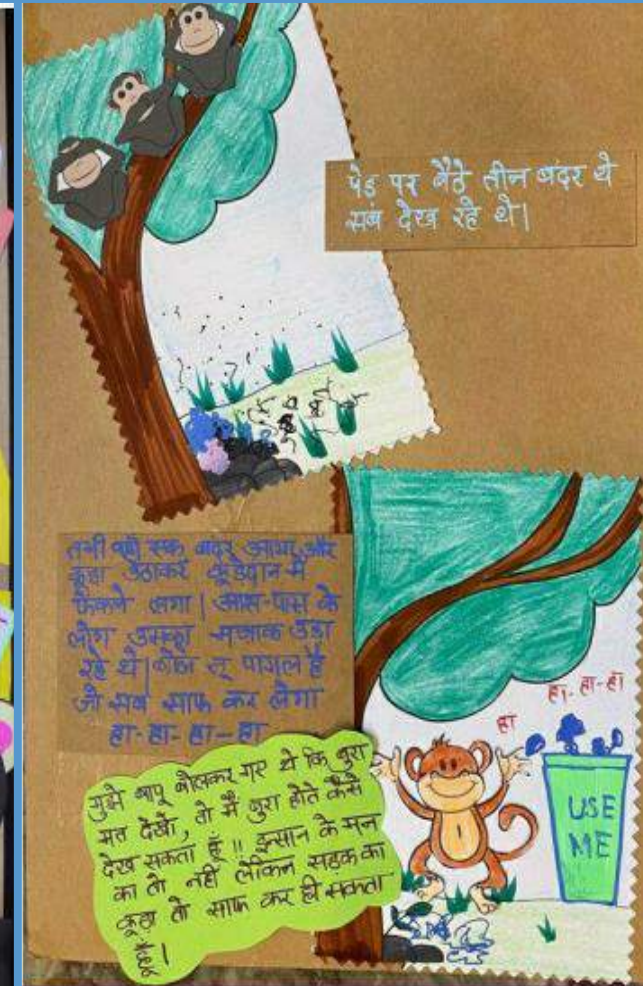 पेड़ पर बैठे तीन बंदर थे
सब देख रहे थे|
तभी वहाँ एक बंदर आया और
कूड़ा उठाकर कूड़ेदान में
फेंकने लगा| आस-पास के
लोग उसका मजाक उड़ा
रहे थे| बोला तू पागल है
जो सब साफ कर लेगा
हा-हा-हा-हा
मुझे बापू बोलकर गए थे कि बुरा
मत देखो, तो मैं बुरा होते कैसे
देख सकता हूँ !! इन्सान के मन
का तो नहीं लेकिन सड़क का
कूड़ा तो साफ कर ही सकता
हूँ|
हा-हा-हा
हा
USE
ME